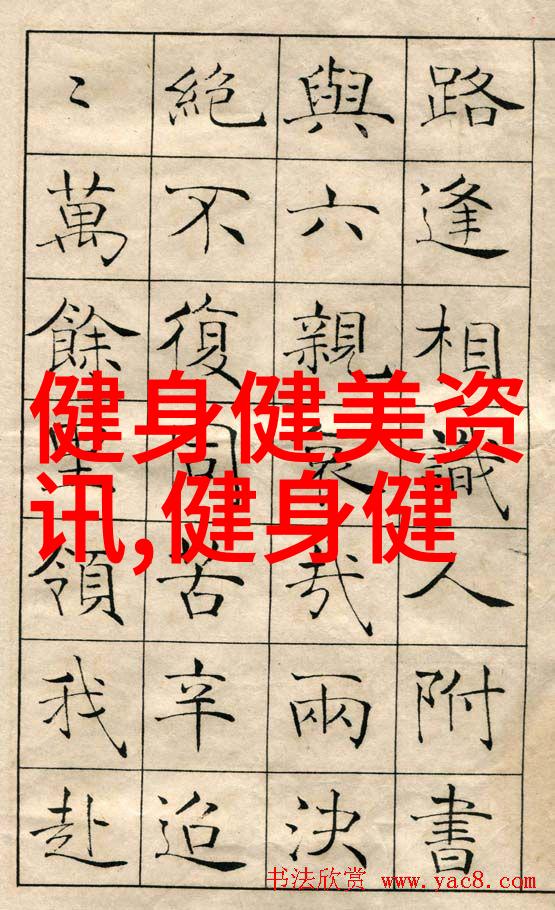 路逢相識人附書
與六親哀哉兩決
絕不復同苦辛迢
〻萬餘里領我赴
健身健美资
讯,健身健
书法欣赏 www.yac8.com